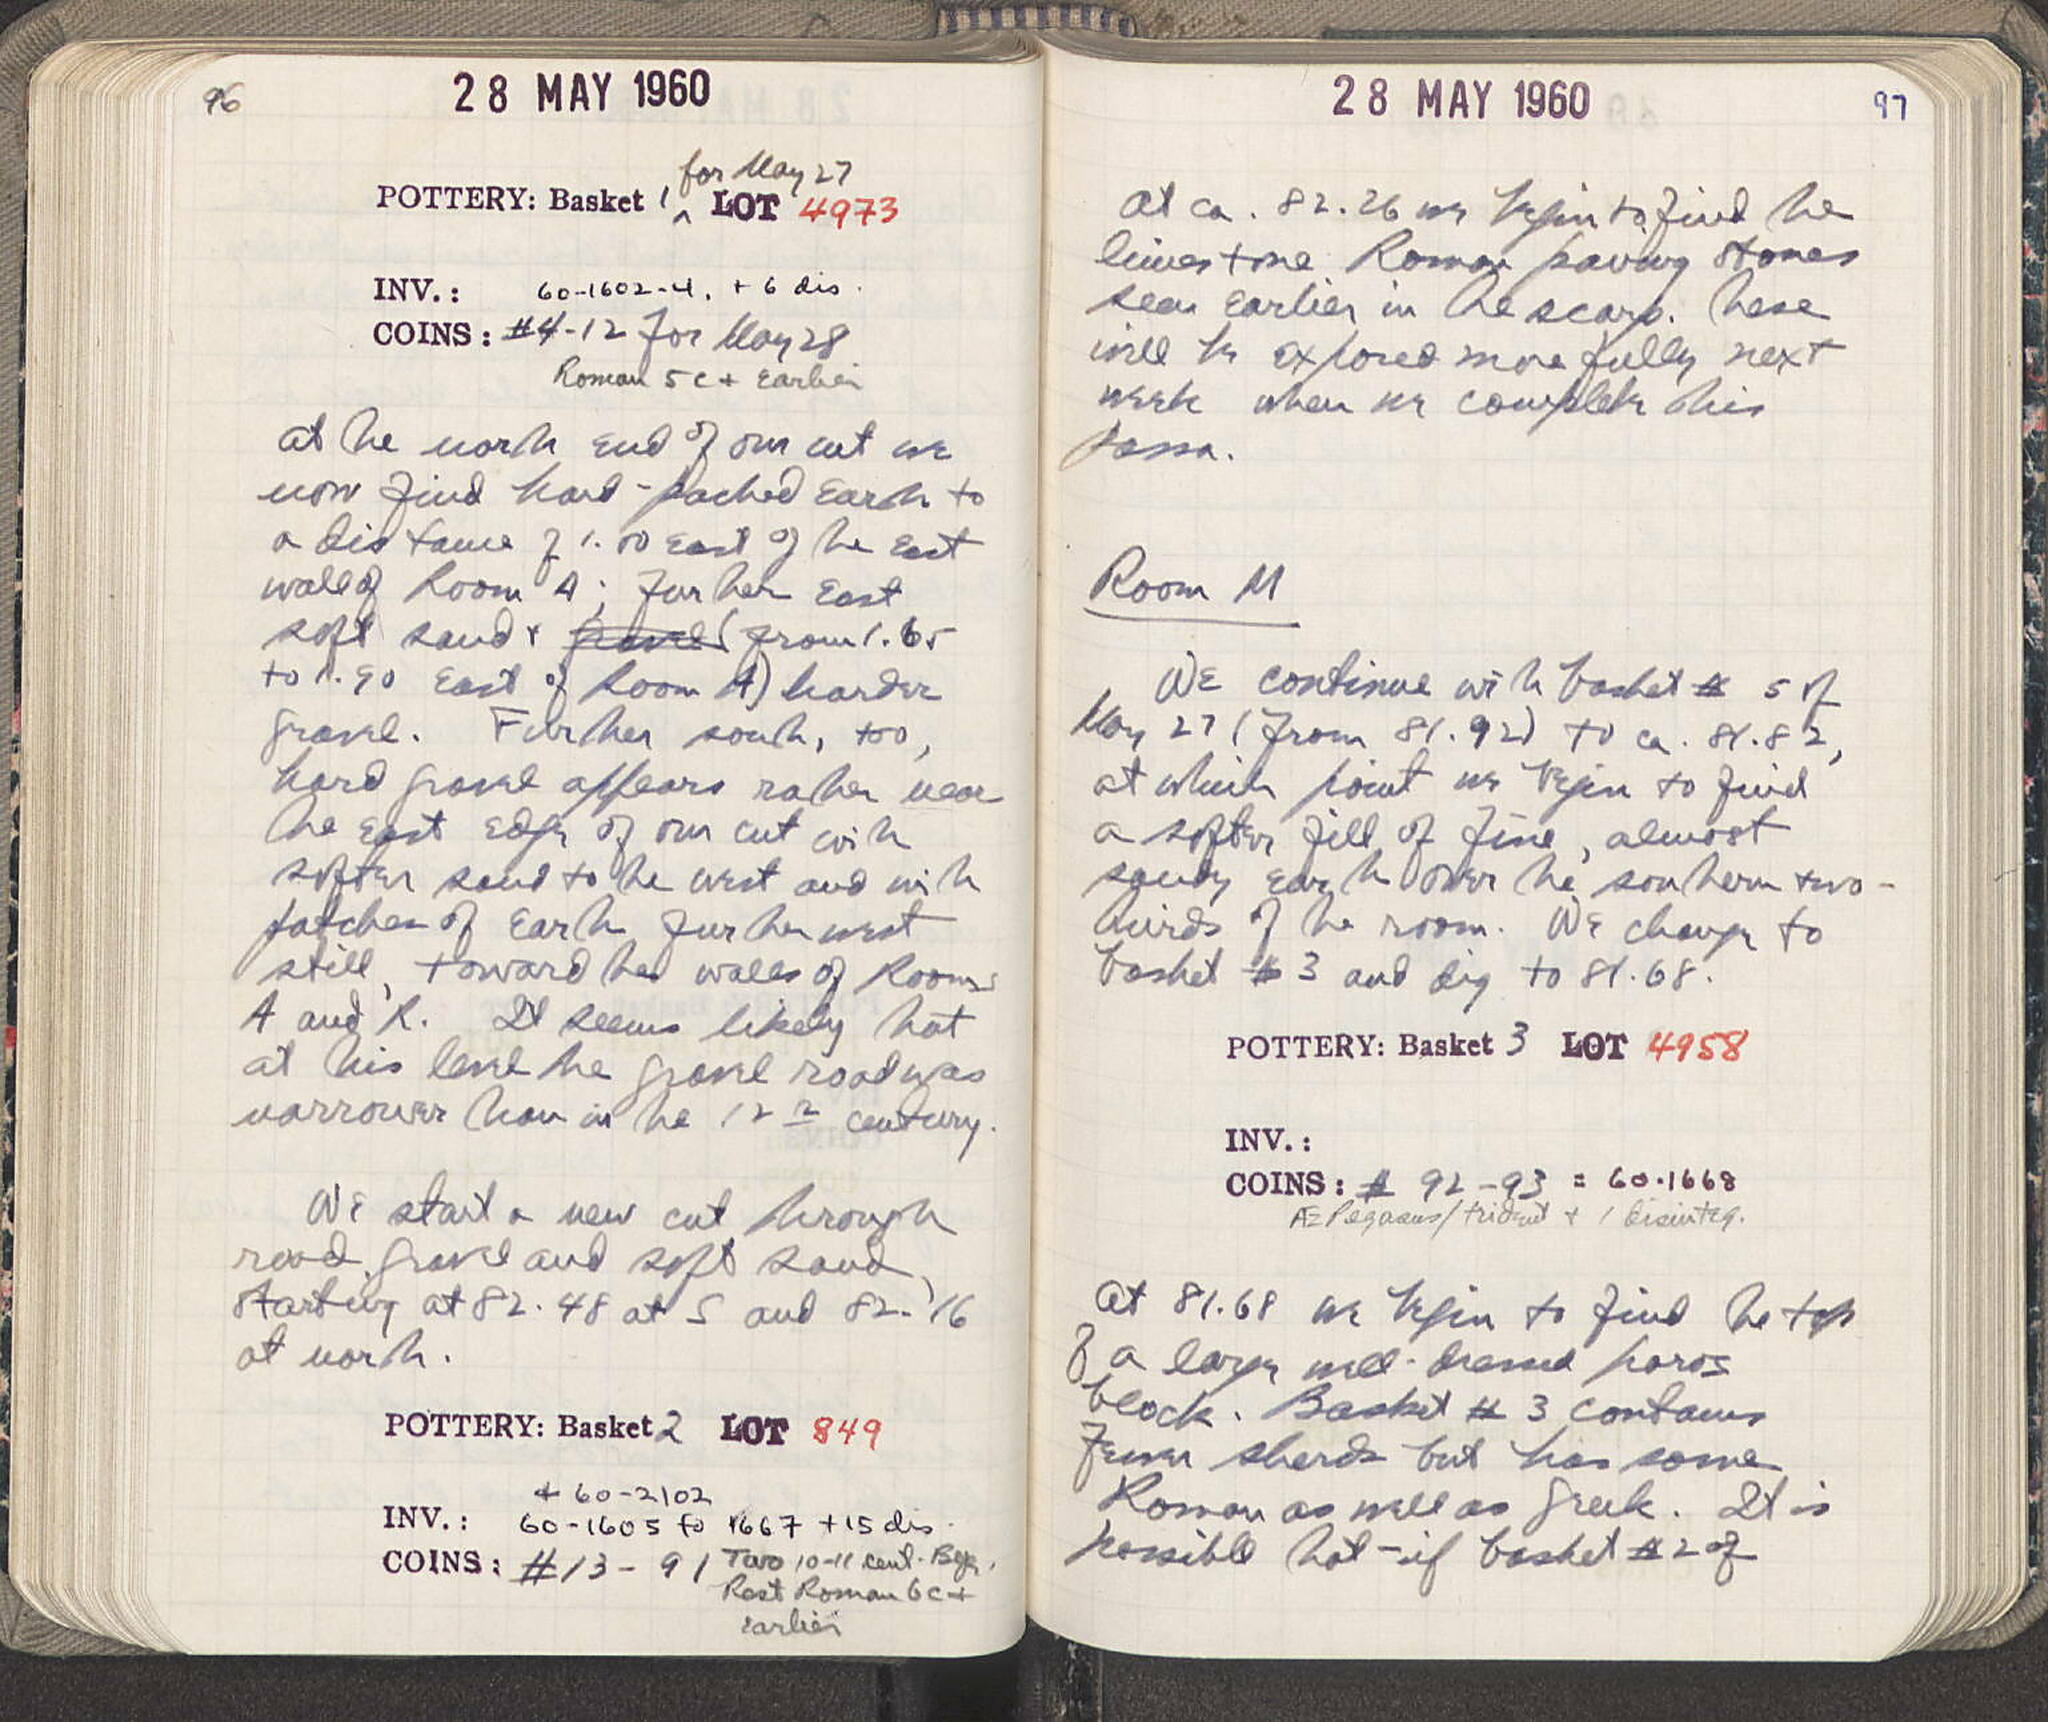 96
28 MAY 1960
for May 27
POTTERY: Basket 1 ^ LOT 4973
INV.: 60-1602-4, + 6 dis.
COINS: #4-12 for May 28
Roman 5 c + Earlier
At the north end of our cut we
now find hard-packed earth to
a distance of 1.00 east of the east
wall of Room A; further east
soft sand + gravel (from 1.65
to 1.90 east of Room A) harder
gravel. Further south, too,
hard gravel appears rather near
the east edge of our cut with
softer sand to the west and with
patches of earth further west
still, toward the walls of Rooms
A and R. It seems likely that
at this level the gravel road was
narrower than in the 12th century.
We start a new cut through
road gravel and soft sand,
starting at 82.48 at S and 82.16
at north.
POTTERY: Basket 2 LOT 849
+ 60-2102
INV.: 60-1605 to 1667 + 15 dis.
COINS: #13-91 Two 10-11 cent. Byz.
Rest Roman 6 c +
Earlier
28 MAY 1960
97
At ca. 82.26 we begin to find the
limestone Roman paving stones
seen earlier in the scarp. These
will be exposed more fully next
week when we complete this
passa.
Room M
We continue with basket # 5 of
May 27 (from 81.92) to ca. 81.82,
at which point we begin to find
a softer fill of fine, almost
sandy earth over the southern two-
thirds of the room. We change to
basket #3 and dig to 81.68.
POTTERY: Basket 3 LOT 4958
INV.:
COINS: # 92-93 = 60-1668
Æ Pegasus/trident + 1 disinteg.
At 81.68 we begin to find the top
of a large well-dressed poros
block. Basket # 3 contains
fewer sherds but has some
Roman as well as Greek. It is
possible that - if basket #2 of